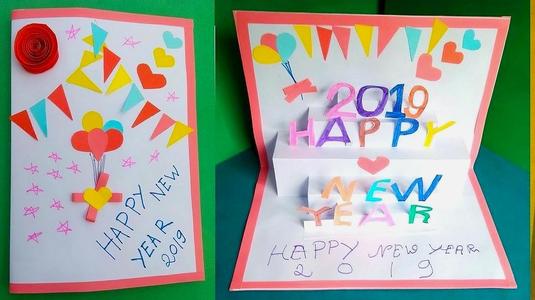 HAPPY NEW
YEAR
2019
2019
HAPPY
NEW
YEAR
HAPPY NEW YEAR
2 0 1 9